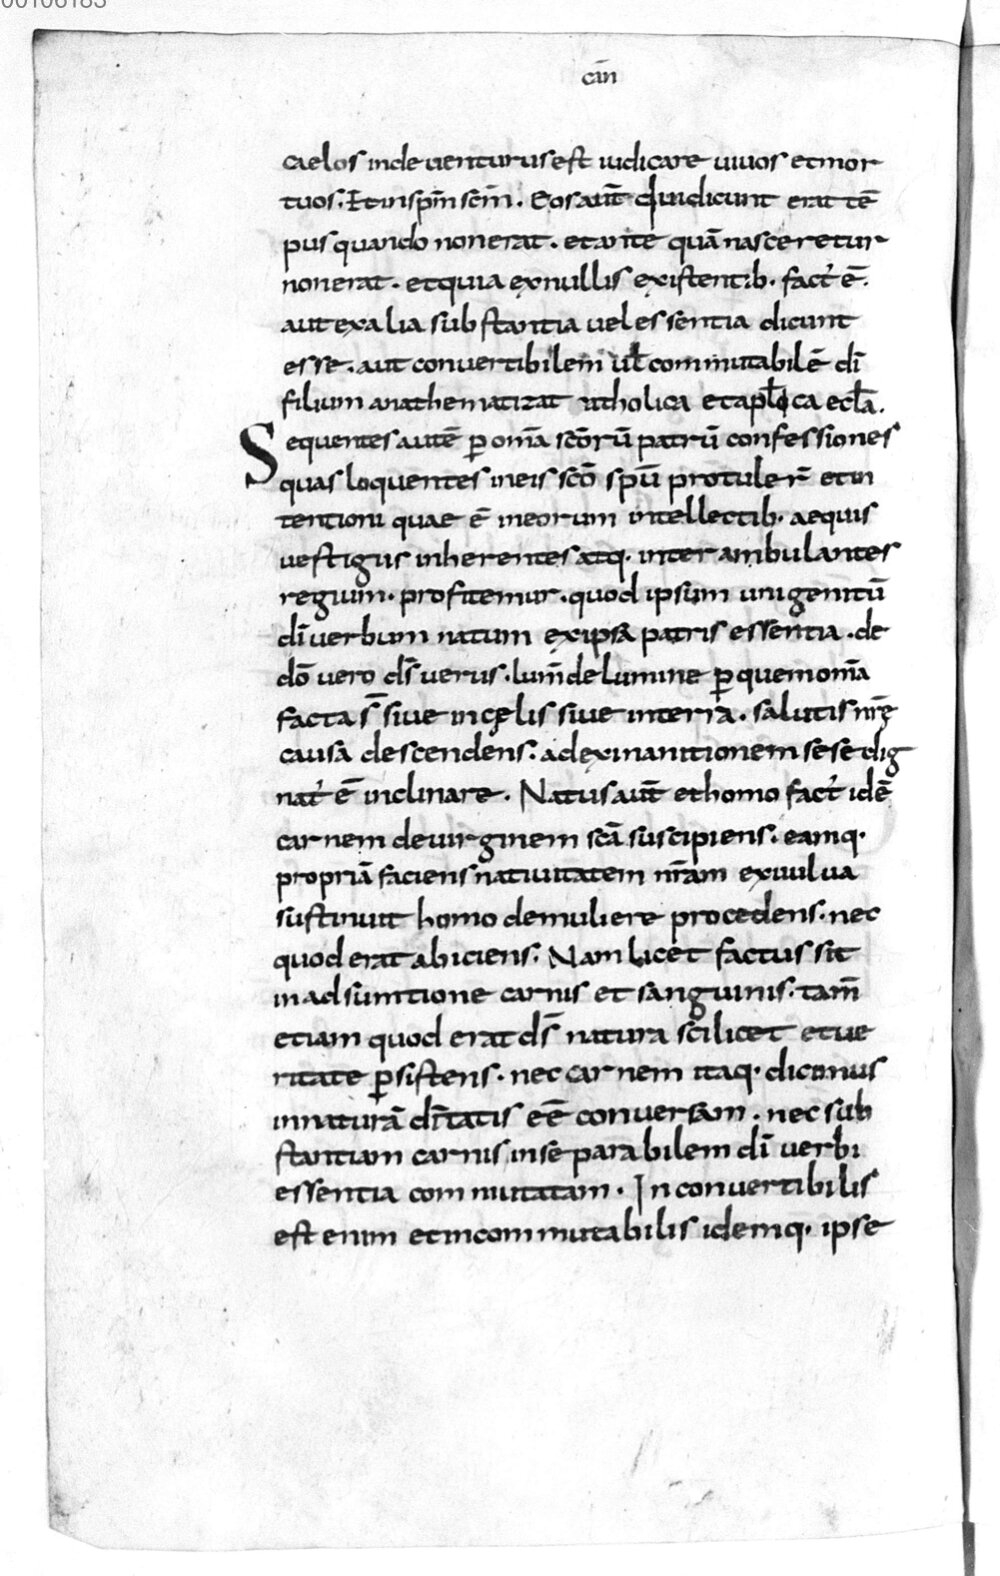 00106183
cān
caelos inde venturus est iudicare uiuos et mor
tuos. Et in spm̄ scm̄. Eos aut̄ qui dicunt erat tē
pus quando non erat. et ante quā nasceretur
non erat. et quia ex nullis existentib. fact' ē.
aut ex alia substantia uel essentia dicunt
esse. aut convertibilem ul̄ commutabilē dī
filium anathematizat catholica et apl̄ica eccl̄a.
Sequentes autē p̄ om̄a scōrū patrū confessiones
quas loquentes in eis scō spū protuler̄ et in
tentioni quae ē in eorum intellectib. aequis
vestigiis inherentes atq. inter ambulantes
regium. profitemur. quod ipsum unigenitū
dī verbum natum ex ipsa patris essentia. de
dō vero ds̄ verus. lum̄ de lumine p̄ quem om̄a
facta s̄ sive in cęlis sive in terra. salutis nr̄ę
causā descendens. ad exinanitionem sese dig
nat' ē inclinare. Natus aut̄ et homo fact' idē
carnem de virginem scā suscipiens. eamq.
propriā faciens nativitatem nr̄am ex vulva
sustinuit homo de muliere procedens. nec
quod erat abiciens. Nam licet factus sit
in adsumtione carnis et sanguinis. tam̄
etiam quod erat ds̄ natura scilicet et ue
ritate p̄sistens. nec carnem itaq. dicimus
in naturā dīitatis eē conversam. nec sub
stantiam carnis inseparabilem dī verbi
essentia commutatam. Inconvertibilis
est enim et incommutabilis idemq. ipse